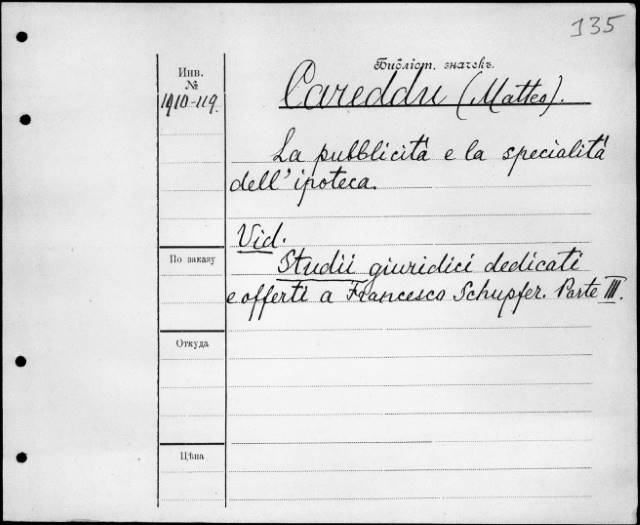 135
Библіот. значекъ.
Инв.
№
1910-119.
Careddu (Matteo).
La pubblicità e la specialità
dell'ipoteca.
Vid.
Studii giuridici dedicati
e offerti a Francesco Schupfer. Parte III.
По заказу
Откуда
Цѣна